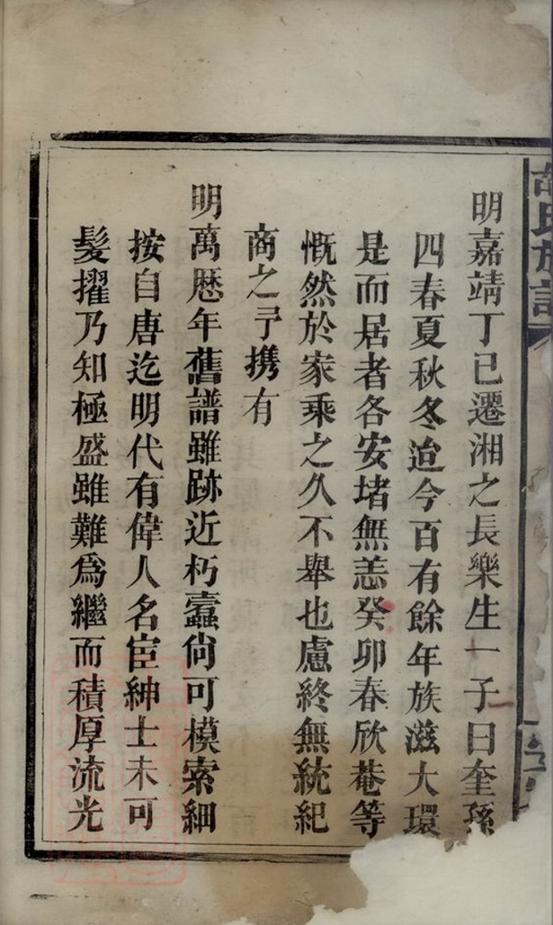 胡氏族譜
明嘉靖丁巳遷湘之長樂生一子曰奎孫
四春夏秋冬迨今百有餘年族滋大環
是而居者各安堵無恙癸卯春欣菴等
慨然於家乘之久不舉也慮終無統紀
商之予携有
明萬厯年舊譜雖跡近朽蠹尙可模索細
按自唐迄明代有偉人名宦紳士未可
髮擢乃知極盛雖難爲繼而積厚流光